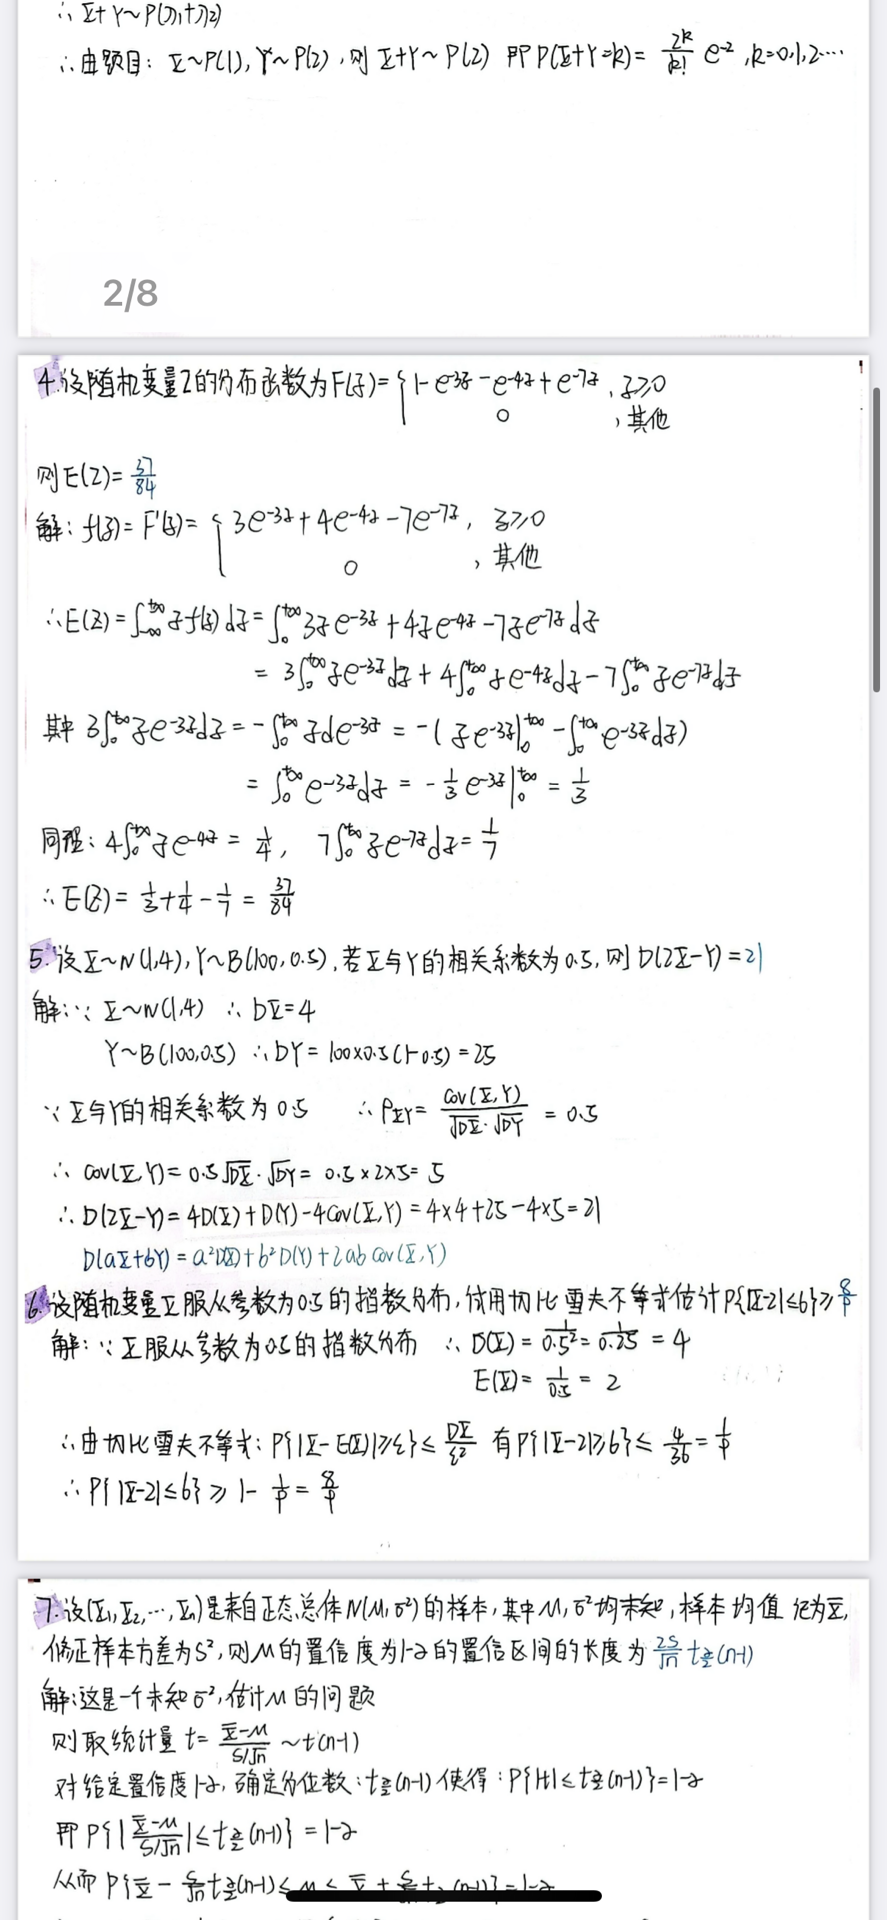 ∴ X+Y~P(λ1+λ2)
∴由题目: X~P(1), Y~P(2), 则 X+Y~P(2) 即 P(X+Y=k)= 2^k/k! e^-2, k=0,1,2……
2/8
4.设随机变量Z的分布函数为F(z)={1-e^-3z-e^-4z+e^-7z, z≥0
0 , 其他
则E(Z)=37/84
解: f(z)=F'(z)={3e^-3z+4e^-4z-7e^-7z, z≥0
0 , 其他
∴E(Z)=∫_-∞^+∞ zf(z)dz=∫_0^+∞ 3ze^-3z+4ze^-4z-7ze^-7z dz
=3∫_0^+∞ ze^-3z dz+4∫_0^+∞ ze^-4z dz-7∫_0^+∞ ze^-7z dz
其中 3∫_0^+∞ ze^-3z dz=-∫_0^+∞ zde^-3z=-(ze^-3z|_0^+∞-∫_0^+∞ e^-3z dz)
=∫_0^+∞ e^-3z dz=-1/3 e^-3z|_0^+∞=1/3
同理: 4∫_0^+∞ ze^-4z=1/4, 7∫_0^+∞ ze^-7z dz=1/7
∴E(Z)=1/3+1/4-1/7=37/84
5.设X~N(1,4),Y~B(100,0.5),若X与Y的相关系数为0.5,则D(2X-Y)=21
解:∵X~N(1,4) ∴DX=4
Y~B(100,0.5) ∴DY=100×0.5(1-0.5)=25
∵X与Y的相关系数为0.5 ∴ρXY=Cov(X,Y)/√DX·√DY=0.5
∴Cov(X,Y)=0.5√DX·√DY=0.5×2×5=5
∴D(2X-Y)=4D(X)+D(Y)-4Cov(X,Y)=4×4+25-4×5=21
D(aX+bY)=a²D(X)+b²D(Y)+2abCov(X,Y)
6.设随机变量X服从参数为0.5的指数分布,试用切比雪夫不等式估计P{|X-2|≤6}≥8/9
解:∵X服从参数为0.5的指数分布 ∴D(X)=1/0.5²=1/0.25=4
E(X)=1/0.5=2
∴由切比雪夫不等式:P{|X-E(X)|≥ε}≤DX/ε² 有P{|X-2|≥6}≤4/36=1/9
∴P{|X-2|≤6}≥1-1/9=8/9
7.设(X1,X2,…,Xn)是来自正态总体N(μ,σ²)的样本,其中μ,σ²均未知,样本均值记为X̄,
修正样本方差为S²,则μ的置信度为1-α的置信区间的长度为2S/√n tα/2(n-1)
解:这是一个未知σ²,估计μ的问题
则取统计量t=X̄-μ/S/√n~t(n-1)
对给定置信度1-α,确定分位数:tα/2(n-1)使得:P{|t|≤tα/2(n-1)}=1-α
即P{|X̄-μ/S/√n|≤tα/2(n-1)}=1-α
从而P{X̄-S/√n tα/2(n-1)≤μ≤X̄+S/√n tα/2(n-1)}=1-α